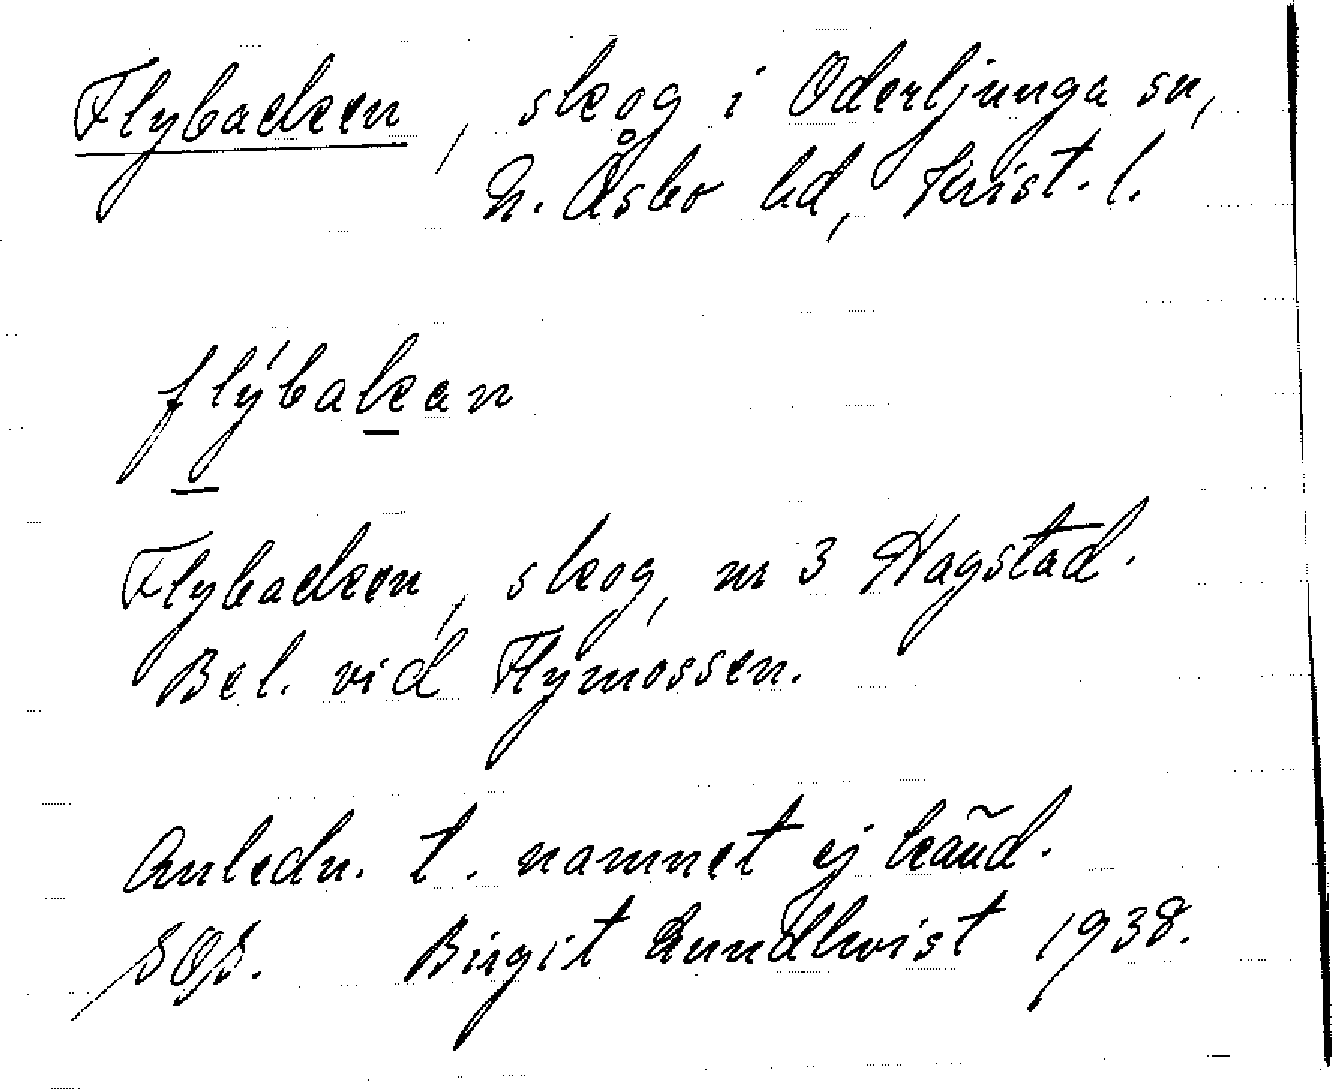 Flybacken, skog i Oderljunga sn,
N. Åsbo hd, Krist. l.
flýbakan
Flybacken, skog, nr 3 Hagstad.
Bel. vid Flymossen.
Anledn. t. namnet ej känd.
SOS. Birgit Lundkvist 1938.